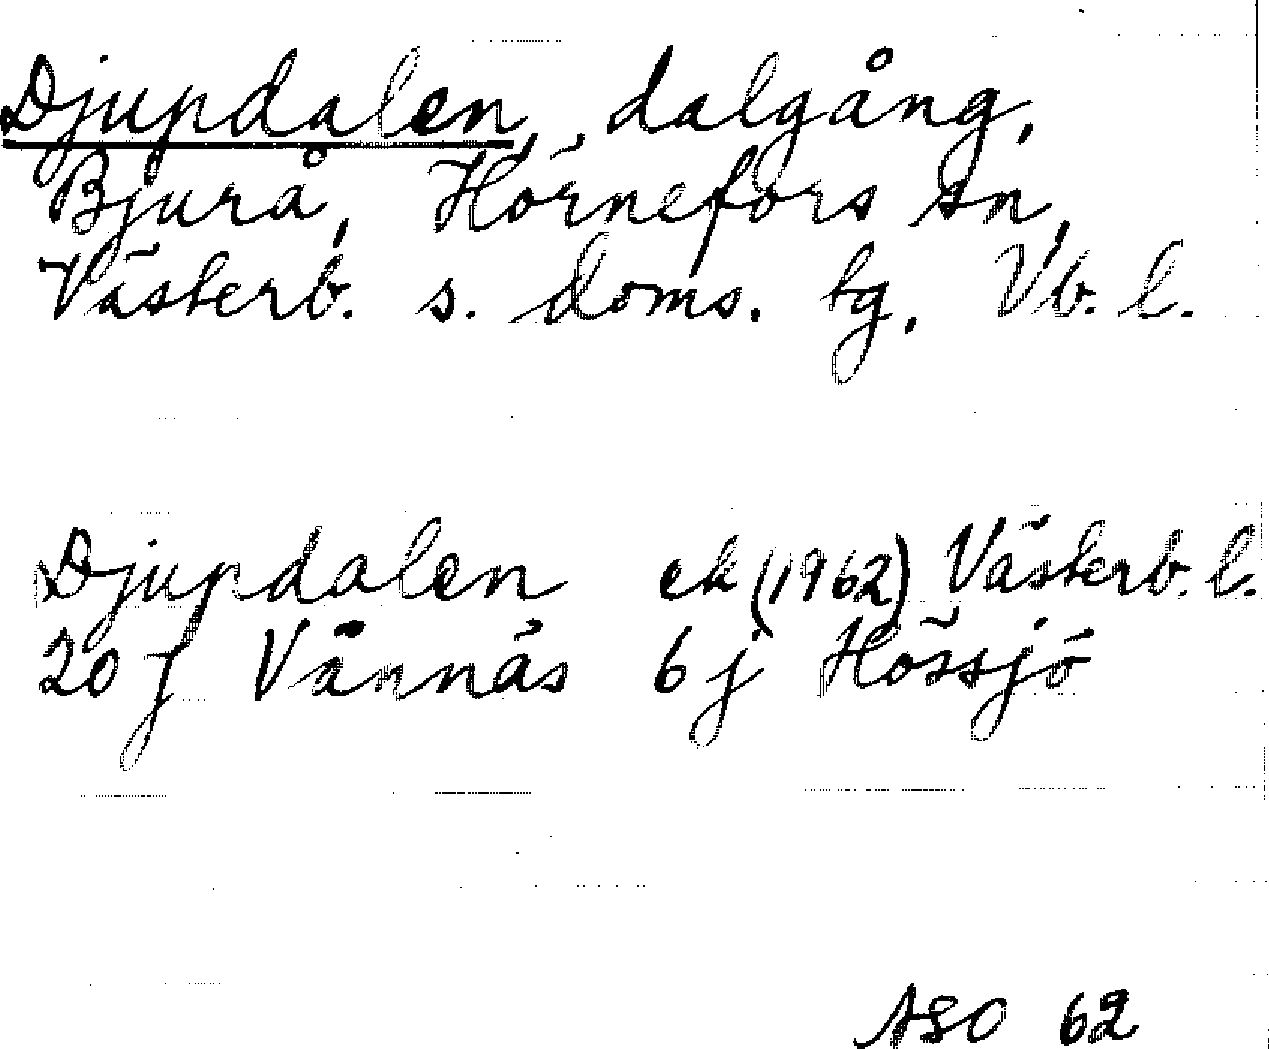 Djupdalen, dalgång,
Bjurå, Hörnefors sn,
Västerb. s. doms. tg, Vb. l.
Djupdalen ek (1962) Västerb. l.
20 J Vännäs 6 j Hössjö
ASO 62